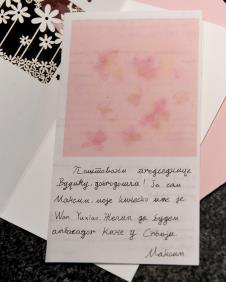 Поштовани председниче
Вучићу, добродошли! Ја сам
Максим, моје кинеско име је
Wan Yuxiao. Желим да будем
амбасадор Кине у Србији.
Максим